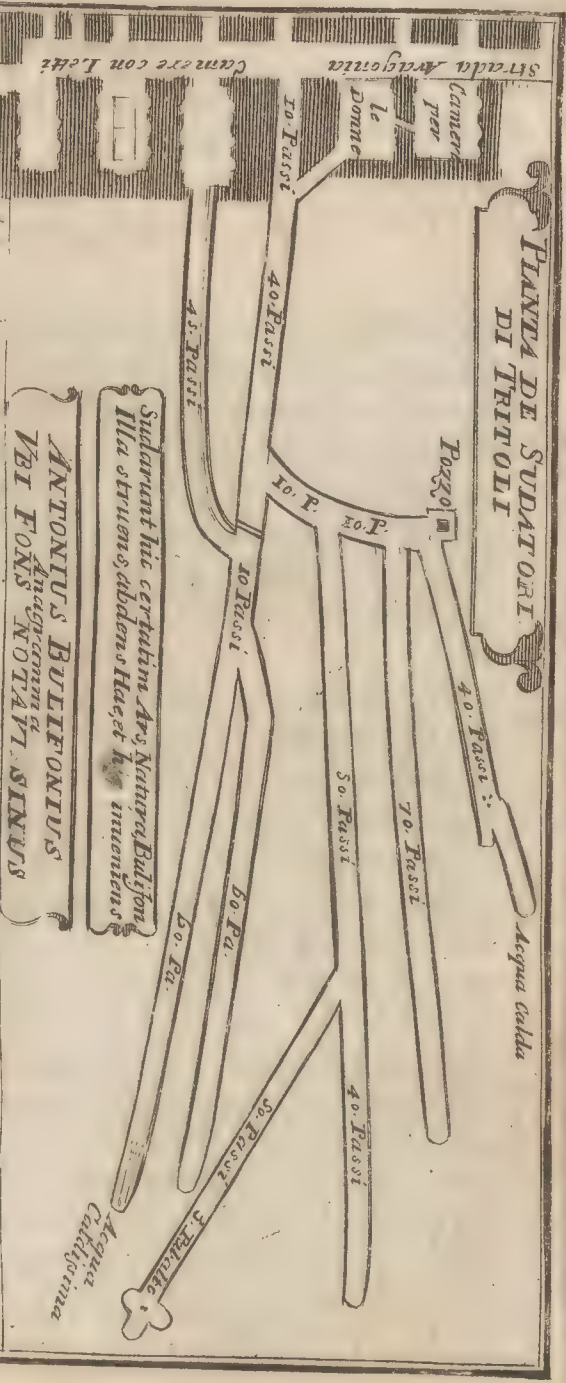 PIANTA DE SUDATORI
DI TRITOLI
Strada Aragonia
Camere con Letti
Camere
per
le
Donne
10. Passi
40. Passi
45. Passi
Pozzo
10. P.
10. P.
40. Passi
Acqua Calda
70. Passi
50. Passi
40. Passi
50. Passi 3.
10 Passi
60. Pa.
60. Pa.
Acqua
Caldissima
Sudarunt hic certatim Ars, Natura, Bulifon
Illa struens, abdens Hæc, et inueniens
ANTONIUS BULIFONIUS
Anagramma
VBI FONS NOTAVI SINUS